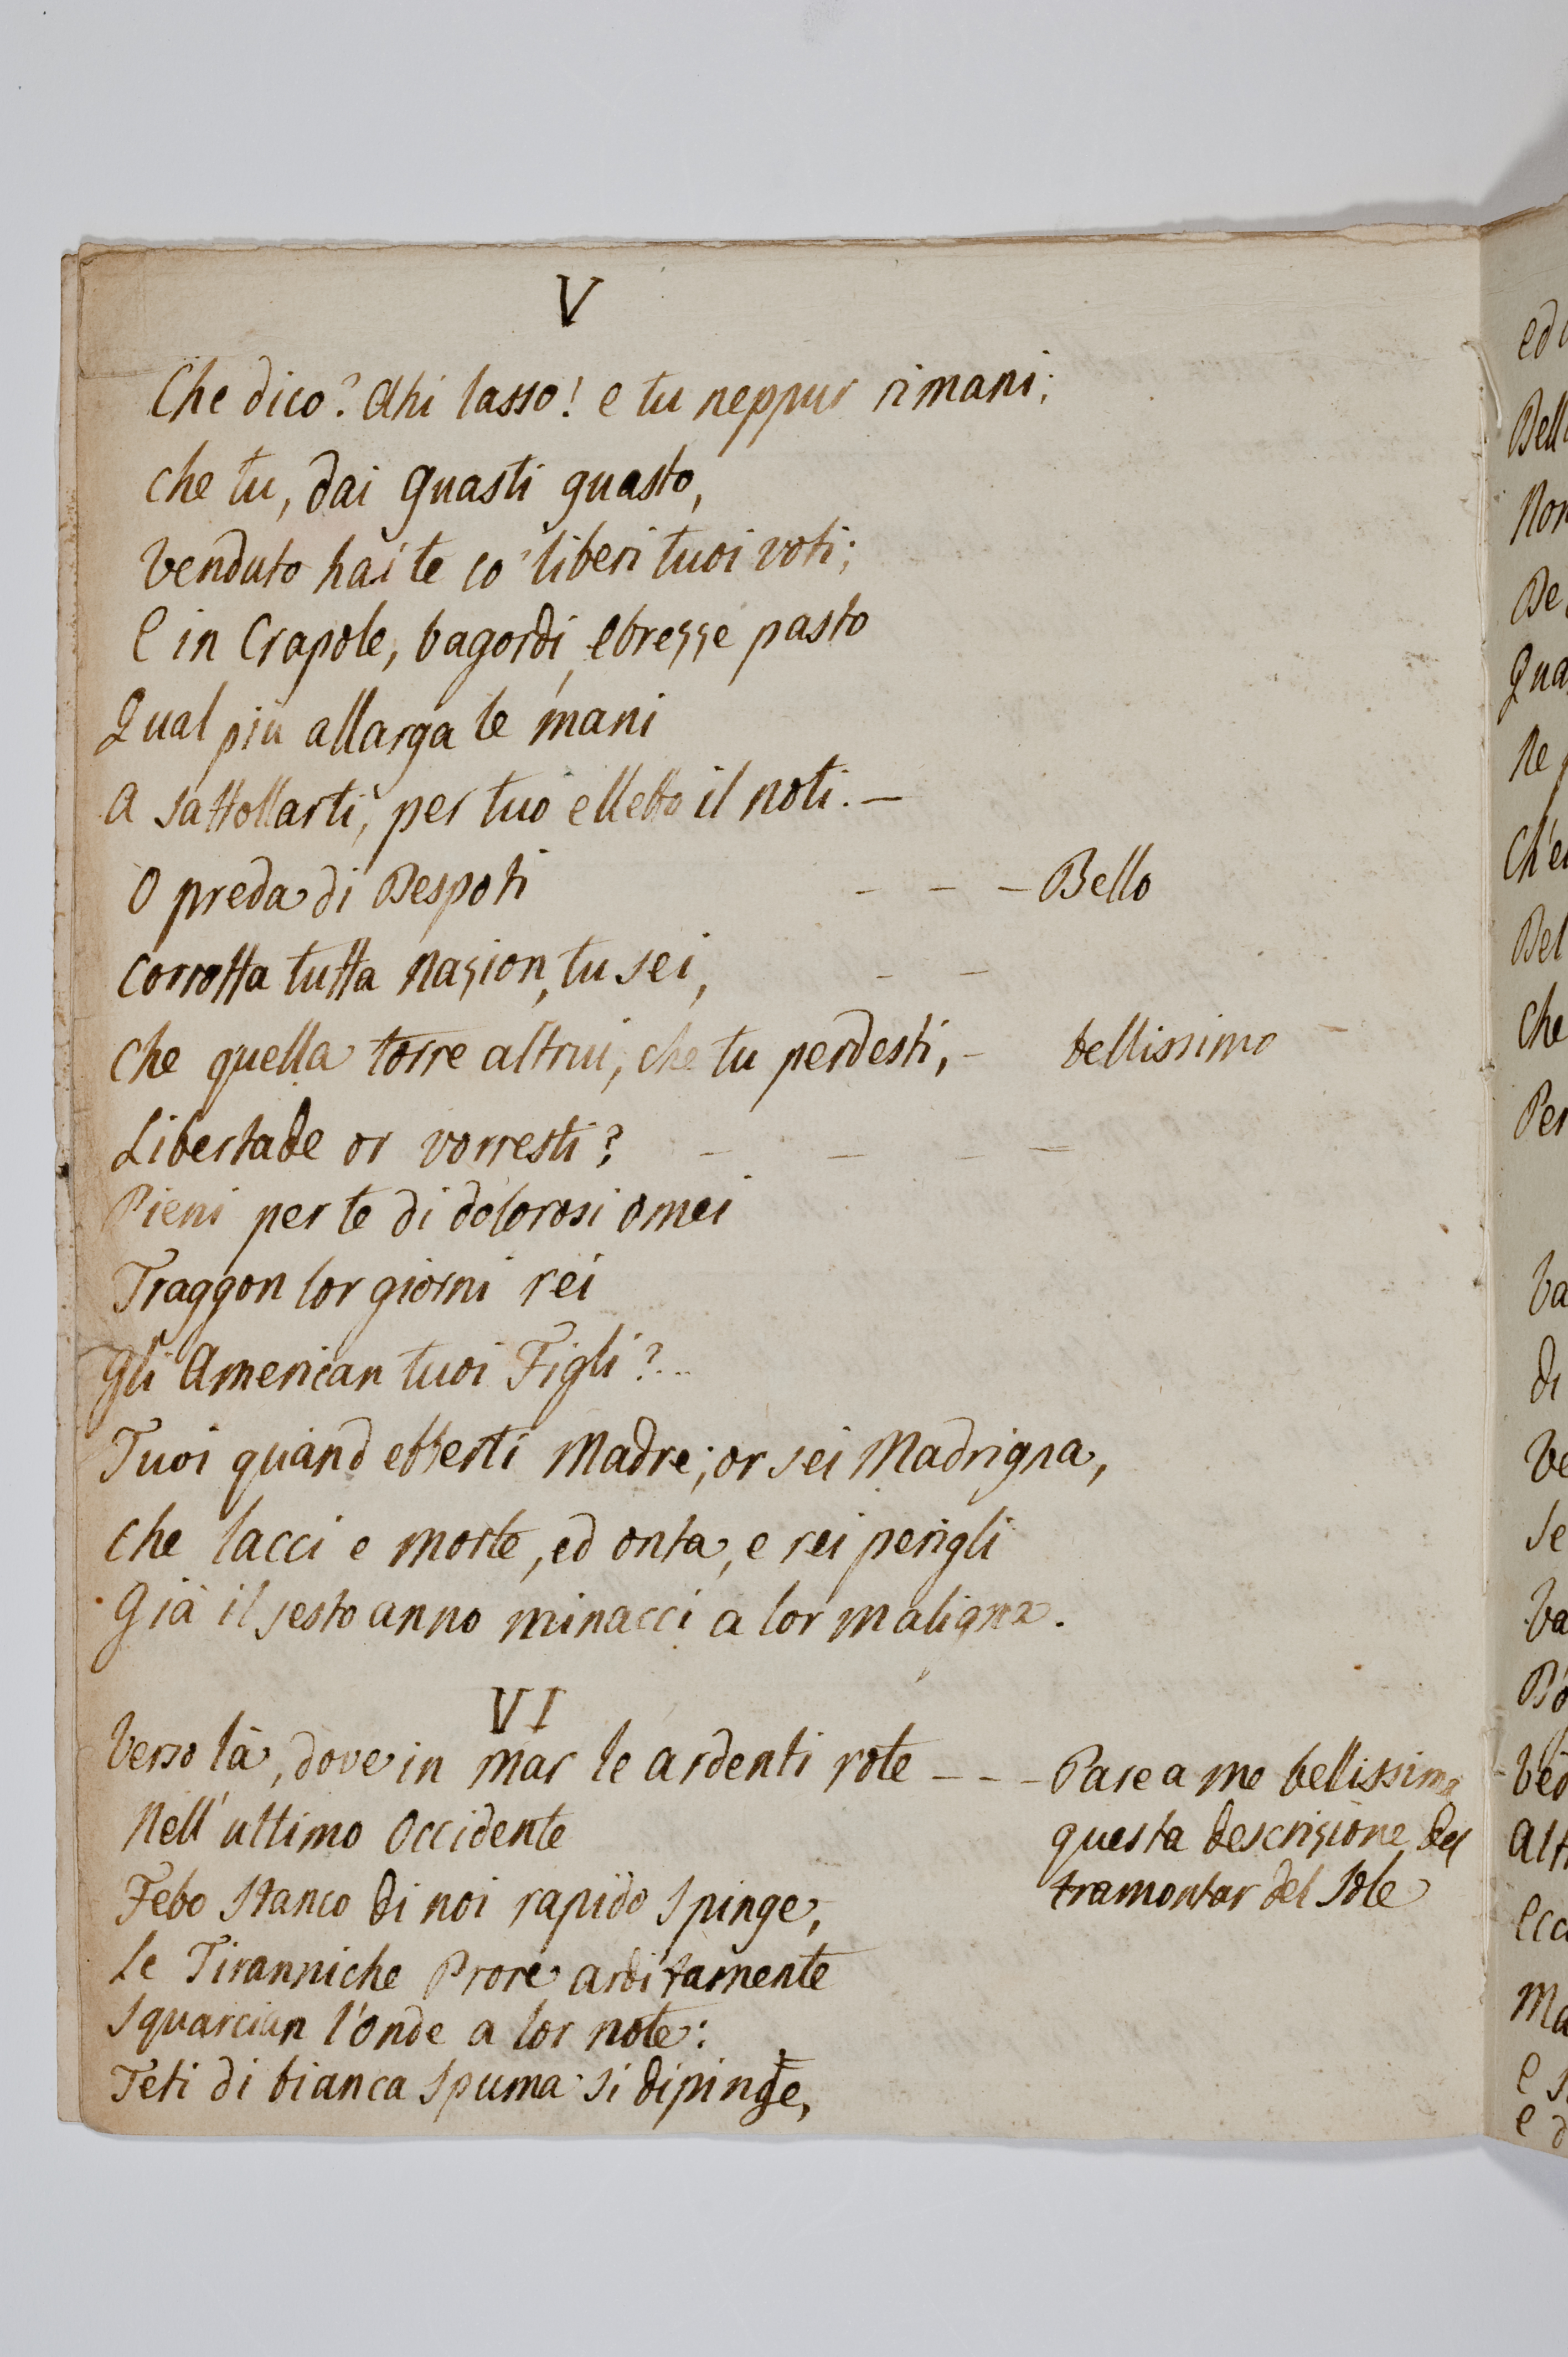 V
Che dico? Ahi lasso! e tu neppur rimani;
che tu, dai guasti guasto,
Venduto hai te co' liberi tuoi voti;
E in Crapole, bagordi, ebrezze pasto
Qual più allarga le mani
A sattollarti, per tuo elletto il noti. —
O preda di Despoti – – – Bello
Corrotta tutta Nazion, tu sei, – –
Che quella torre altrui, che tu perdesti, – bellissimo –
Libertade or vorresti? – – – –
Pieni per te di dolorosi omei
Traggon lor giorni rei
Gli American tuoi Figli?...
Tuoi quand' eri Madre; or sei Madrigna,
Che lacci e morte, ed onta, e rei perigli
Già il sesto anno minacci a lor maligna.
VI
Verso là, dove in mar le ardenti rote – – – Pare a me bellissima
Nell' ultimo Occidente questa descrizione del
Febo stanco di noi rapido spinge, tramontar del Sole
Le Tiranniche Prore arditamente
Squarcian l'onde a lor note:
Teti di bianca spuma si dipinge,
ed
Bell
Non
De
Qua
Ne
Ch'e
Bel
Che
Per
Va
di
Ve
Se
Va
Ved
Alt
Ecc
Ma
E s
E d